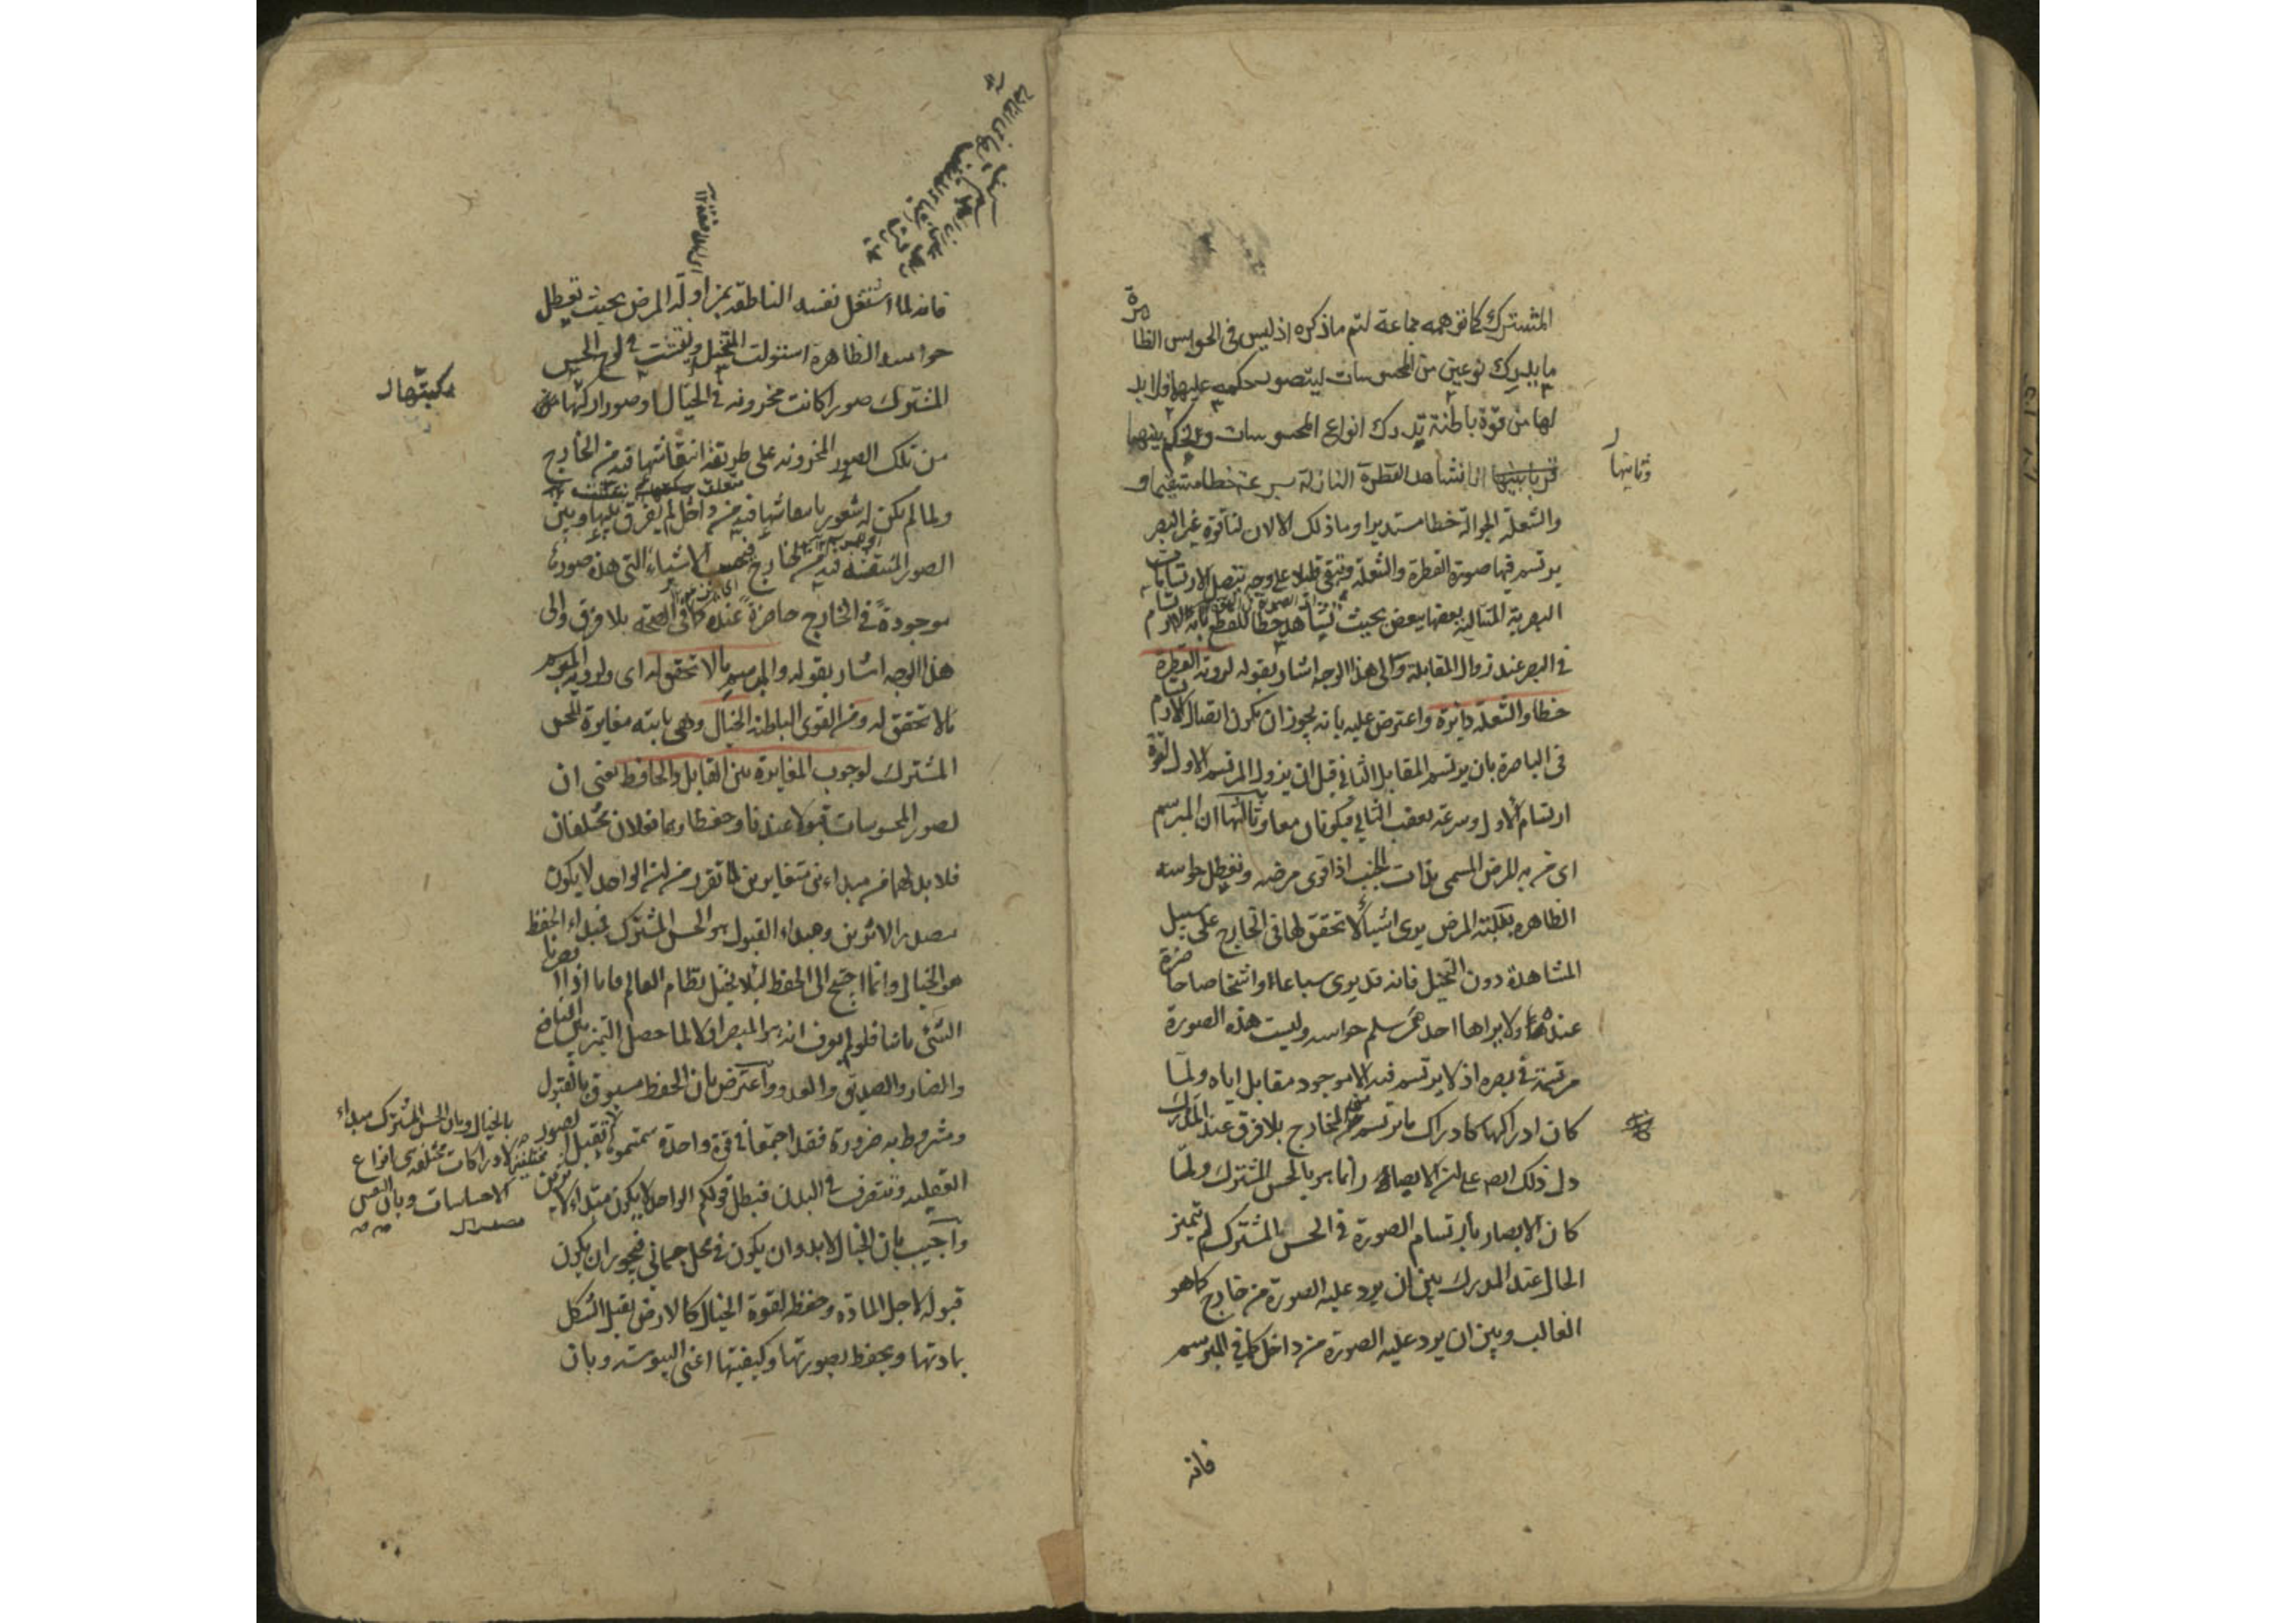 المشترك كما توهمه جماعة لتم ما ذكره اذ ليس فى الحواس الظاهرة
ما يدرك نوعين من المحسوسات ليتصور حكمه عليها فلا بد
لها من قوة باطنة تدرك انواع المحسوسات والحكم بينهما
وثانيها
انا نشاهد القطرة النازلة بسرعة خطا مستقيما و
والشعلة الجوالة خطا مستديرا وما ذلك الا لان لنا قوة غير البصر
يرتسم فيها صورة القطرة والشعلة وتبقى قليلا على وجه يتصل الارتسامات
البصرية المتتالية بعضها ببعض بحيث نشاهد خطا للقطع بانه لا ارتسام
فى البصر عند زوال المقابلة والى هذا الوجه اشار بقوله لرؤية القطرة
خطا والشعلة دائرة واعترض عليه بانه يجوز ان يكون اتصال الارتسام
فى الباصرة بان يرتسم المقابل الثانى قبل ان يزول المرتسم الاول لقوة
ارتسام الاول وسرعة تعقب الثانى فيكونان معا وثالثها ان المبرسم
اى من به المرض المسمى بذات الجنب اذا قوى مرضه وتعطل حواسه
الظاهره بغلبة المرض يرى اشياء لا تحقق لها فى الخارج على سبيل
المشاهدة دون التخيل فانه قد يرى سباعا واشخاصا حاضرة
عنده ولا يراها احد ممن سلم حواسه وليست هذه الصورة
مرتسمة فى بصره اذ لا يرتسم فيه الا موجود مقابل اياه ولما
كان ادراكها كادراك ما يرتسم من الخارج بلا فرق عند المدرك
دل ذلك على ان الابصار انما هو بالحس المشترك ولما
كان الابصار بارتسام الصورة فى الحس المشترك لم يتميز
الحال عند المدرك بين ان يرد عليه الصورة من خارج كما هو
الغالب وبين ان يرد عليه الصورة من داخل كما فى المبرسم
فانه
فانه لما اشتغل نفسه الناطقة بمزاولة المرض بحيث تعطل
حواسه الظاهرة استولت المتخيلة ونقشت فى لوح الحس
المشترك صورا كانت مخزونة فى الخيال او صورا ركبتها
من تلك الصور المخزونة على طريقة انتقاشها فيه من الخارج
ولما لم يكن له شعور بانتقاشها فيه من داخل لم يفرق بينها وبين
الصور المنتقشة فيه من الخارج فيحسب الاشياء التى هذه صورتها
موجودة فى الخارج حاضرة عنده كما فى الصحة بلا فرق والى
هذا الوجه اشار بقوله والمبرسم ما لا تحقق له اى ولرؤية المبرسم
ما لا تحقق له ومن القوى الباطنة الخيال وهى ثابتة مغايرة للحس
المشترك لوجوب المغايرة بين القابل والحافظ يعنى ان
لصور المحسوسات قبولا عندنا وحفظا وهما فعلان مختلفان
فلا بد لهما من مبداءين متغايرين لما تقرر من ان الواحد لا يكون
مصدر الاثرين ومبداء القبول هو الحس المشترك فمبداء الحفظ
هو الخيال وانما احتيج الى الحفظ لئلا يختل نظام العالم فانا اذا ابصرنا
الشئ ثانيا فلو لم يعرف انه هو المبصر اولا لما حصل التميز بين النافع
والضار والصديق والعدو واعترض بان الحفظ مسبوق بالقبول
ومشروط به ضرورة فقد اجتمعا فى قوة واحدة سميتموها
بالخيال وبان الحس المشترك مبداء
لادراكات مختلفة هى انواع
الاحساسات وبان النفس
تقبل الصور
العقلية وتتصرف فى البدن فبطل قولكم الواحد لا يكون مبداء
واجيب بان الخيال لا بد وان يكون فى محل جسمانى فيجوز ان يكون
قبوله لاجل المادة وحفظه لقوة الخيال كالارض يقبل الشكل
بمادتها ويحفظ بصورتها وكيفيتها اعنى اليبوسة وبان